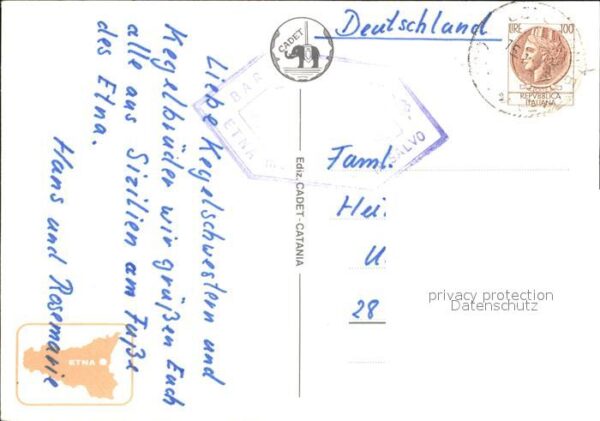 Liebe Kegelschwestern und
Kegelbrüder wir grüßen Euch
alle aus Sizilien am Fuße
des Etna.
Hans und Rosemarie
ETNA
CADET
BAR
ETNA
SALVO
Ediz. CADET-CATANIA
Deutschland
LIRE 100
REPVBBLICA
ITALIANA
Faml.
Hei
U
28
privacy protection
Datenschutz